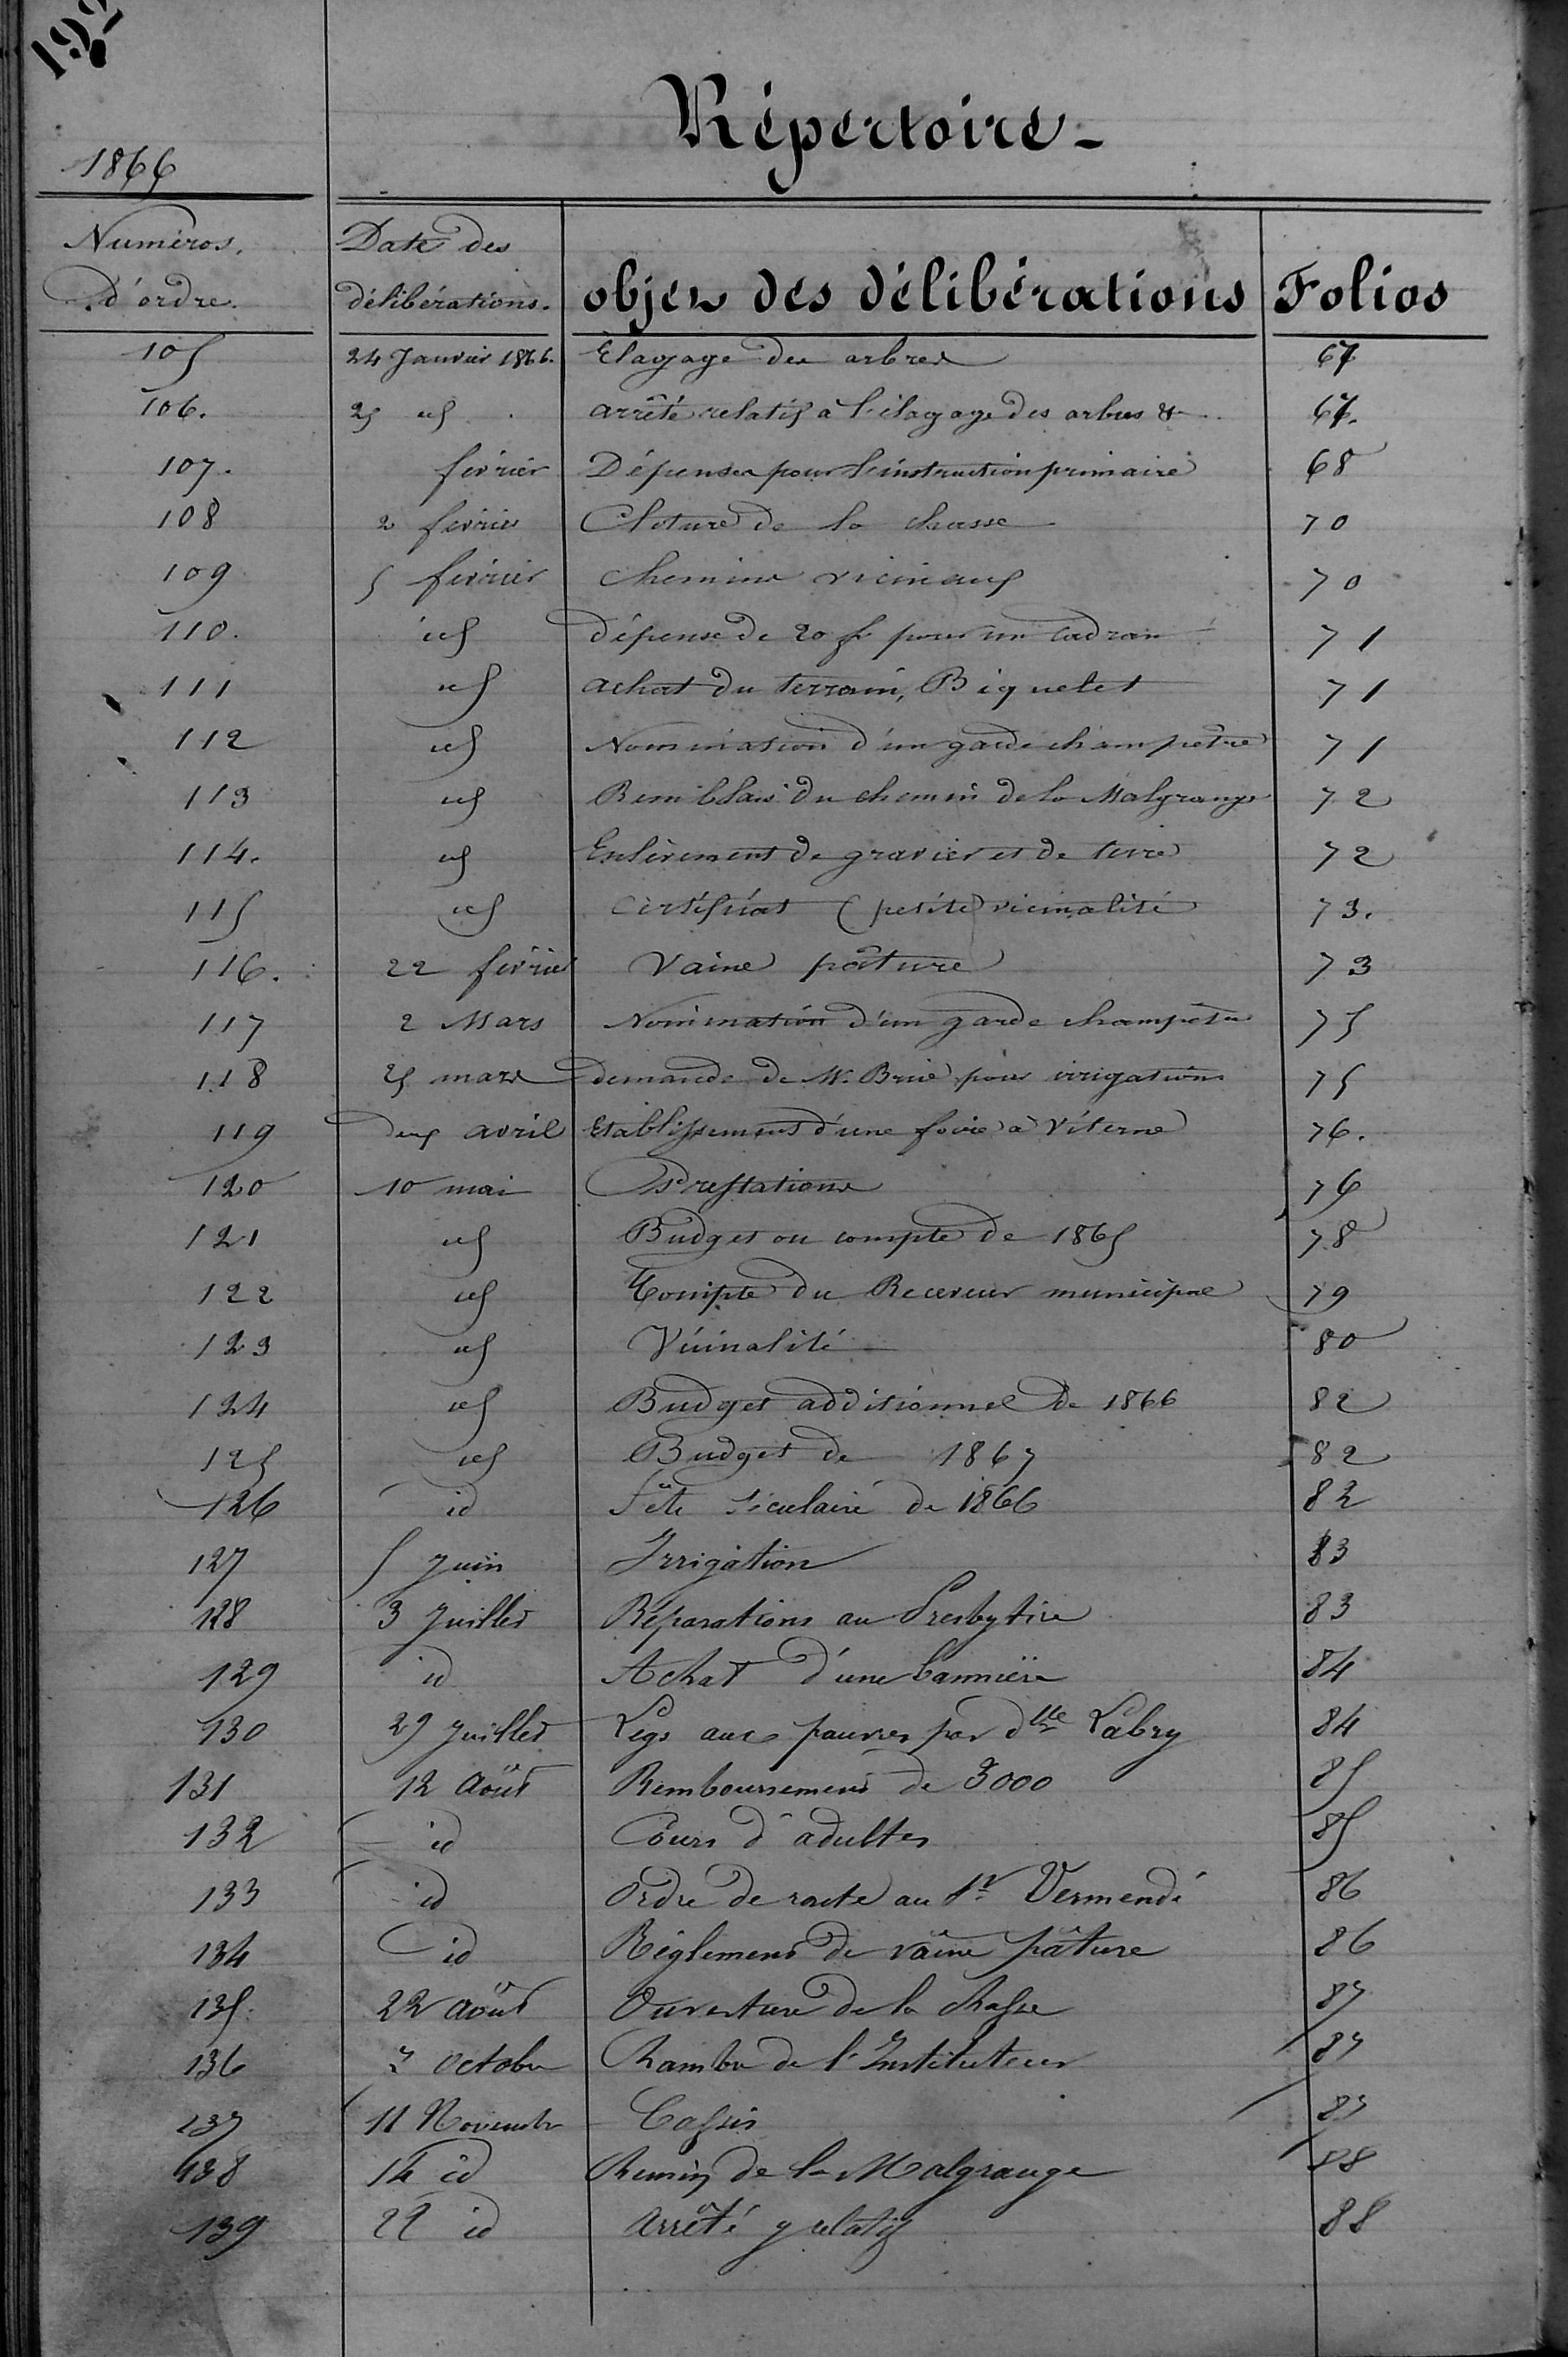 122
Répertoire -
1866
Numéros d'ordre. Date des délibérations. objet des délibérations Folios
105 24 Janvier 1866. Élagage des arbres 67
106. 25 id arrêté relatif à l'élagage des arbres & 67.
107. février Dépenses pour l'instruction primaire 68
108 2 février Cloture de la chasse 70
109 5 février chemins vicinaux 70
110. id dépense de 20 fr pour un cadran 71
111 id achat du terrain, Biquelet 71
112 id Nomination d'un garde champêtre 71
113 id Remblais du chemin de la Malgrange 72
114. id Enlèvement de gravier et de terre 72
115 id Certificat (petite) vicinalité 73.
116. 22 février Vaine pâture 73
117 2 Mars Nomination d'un garde champêtre 75
118 25 mars demande de M. Brié pour irrigations 75
119 deux avril Etablissement d'une foire à Viterne 76.
120 10 mai Prestations 76
121 id Budget ou compte de 1865 78
122 id Compte du Receveur municipal 79
123 id Vicinalité 80
124 id Budget additionnel de 1866 82
125 id Budget de 1867 82
126 id fête séculaire de 1866 82
127 5 Juin Irrigation 83
128 3 Juillet Réparations au Presbytère 83
129 id Achat d'une bannière 84
130 29 Juillet Legs aux pauvres par dlle Labry 84
131 12 Août Remboursement de 3000 85
132 id Cours d'adultes 85
133 id Ordre de route au Sr Vermendé 86
134 id Règlement de vaine pâture 86
135. 22 août Ouverture de la chasse 87
136 octobre Chambre de l'Instituteur 87
137 11 Novembre Cassis 87
138 14 id Chemin de la Malgrange 88
139 22 id Arrêté y relatif 88